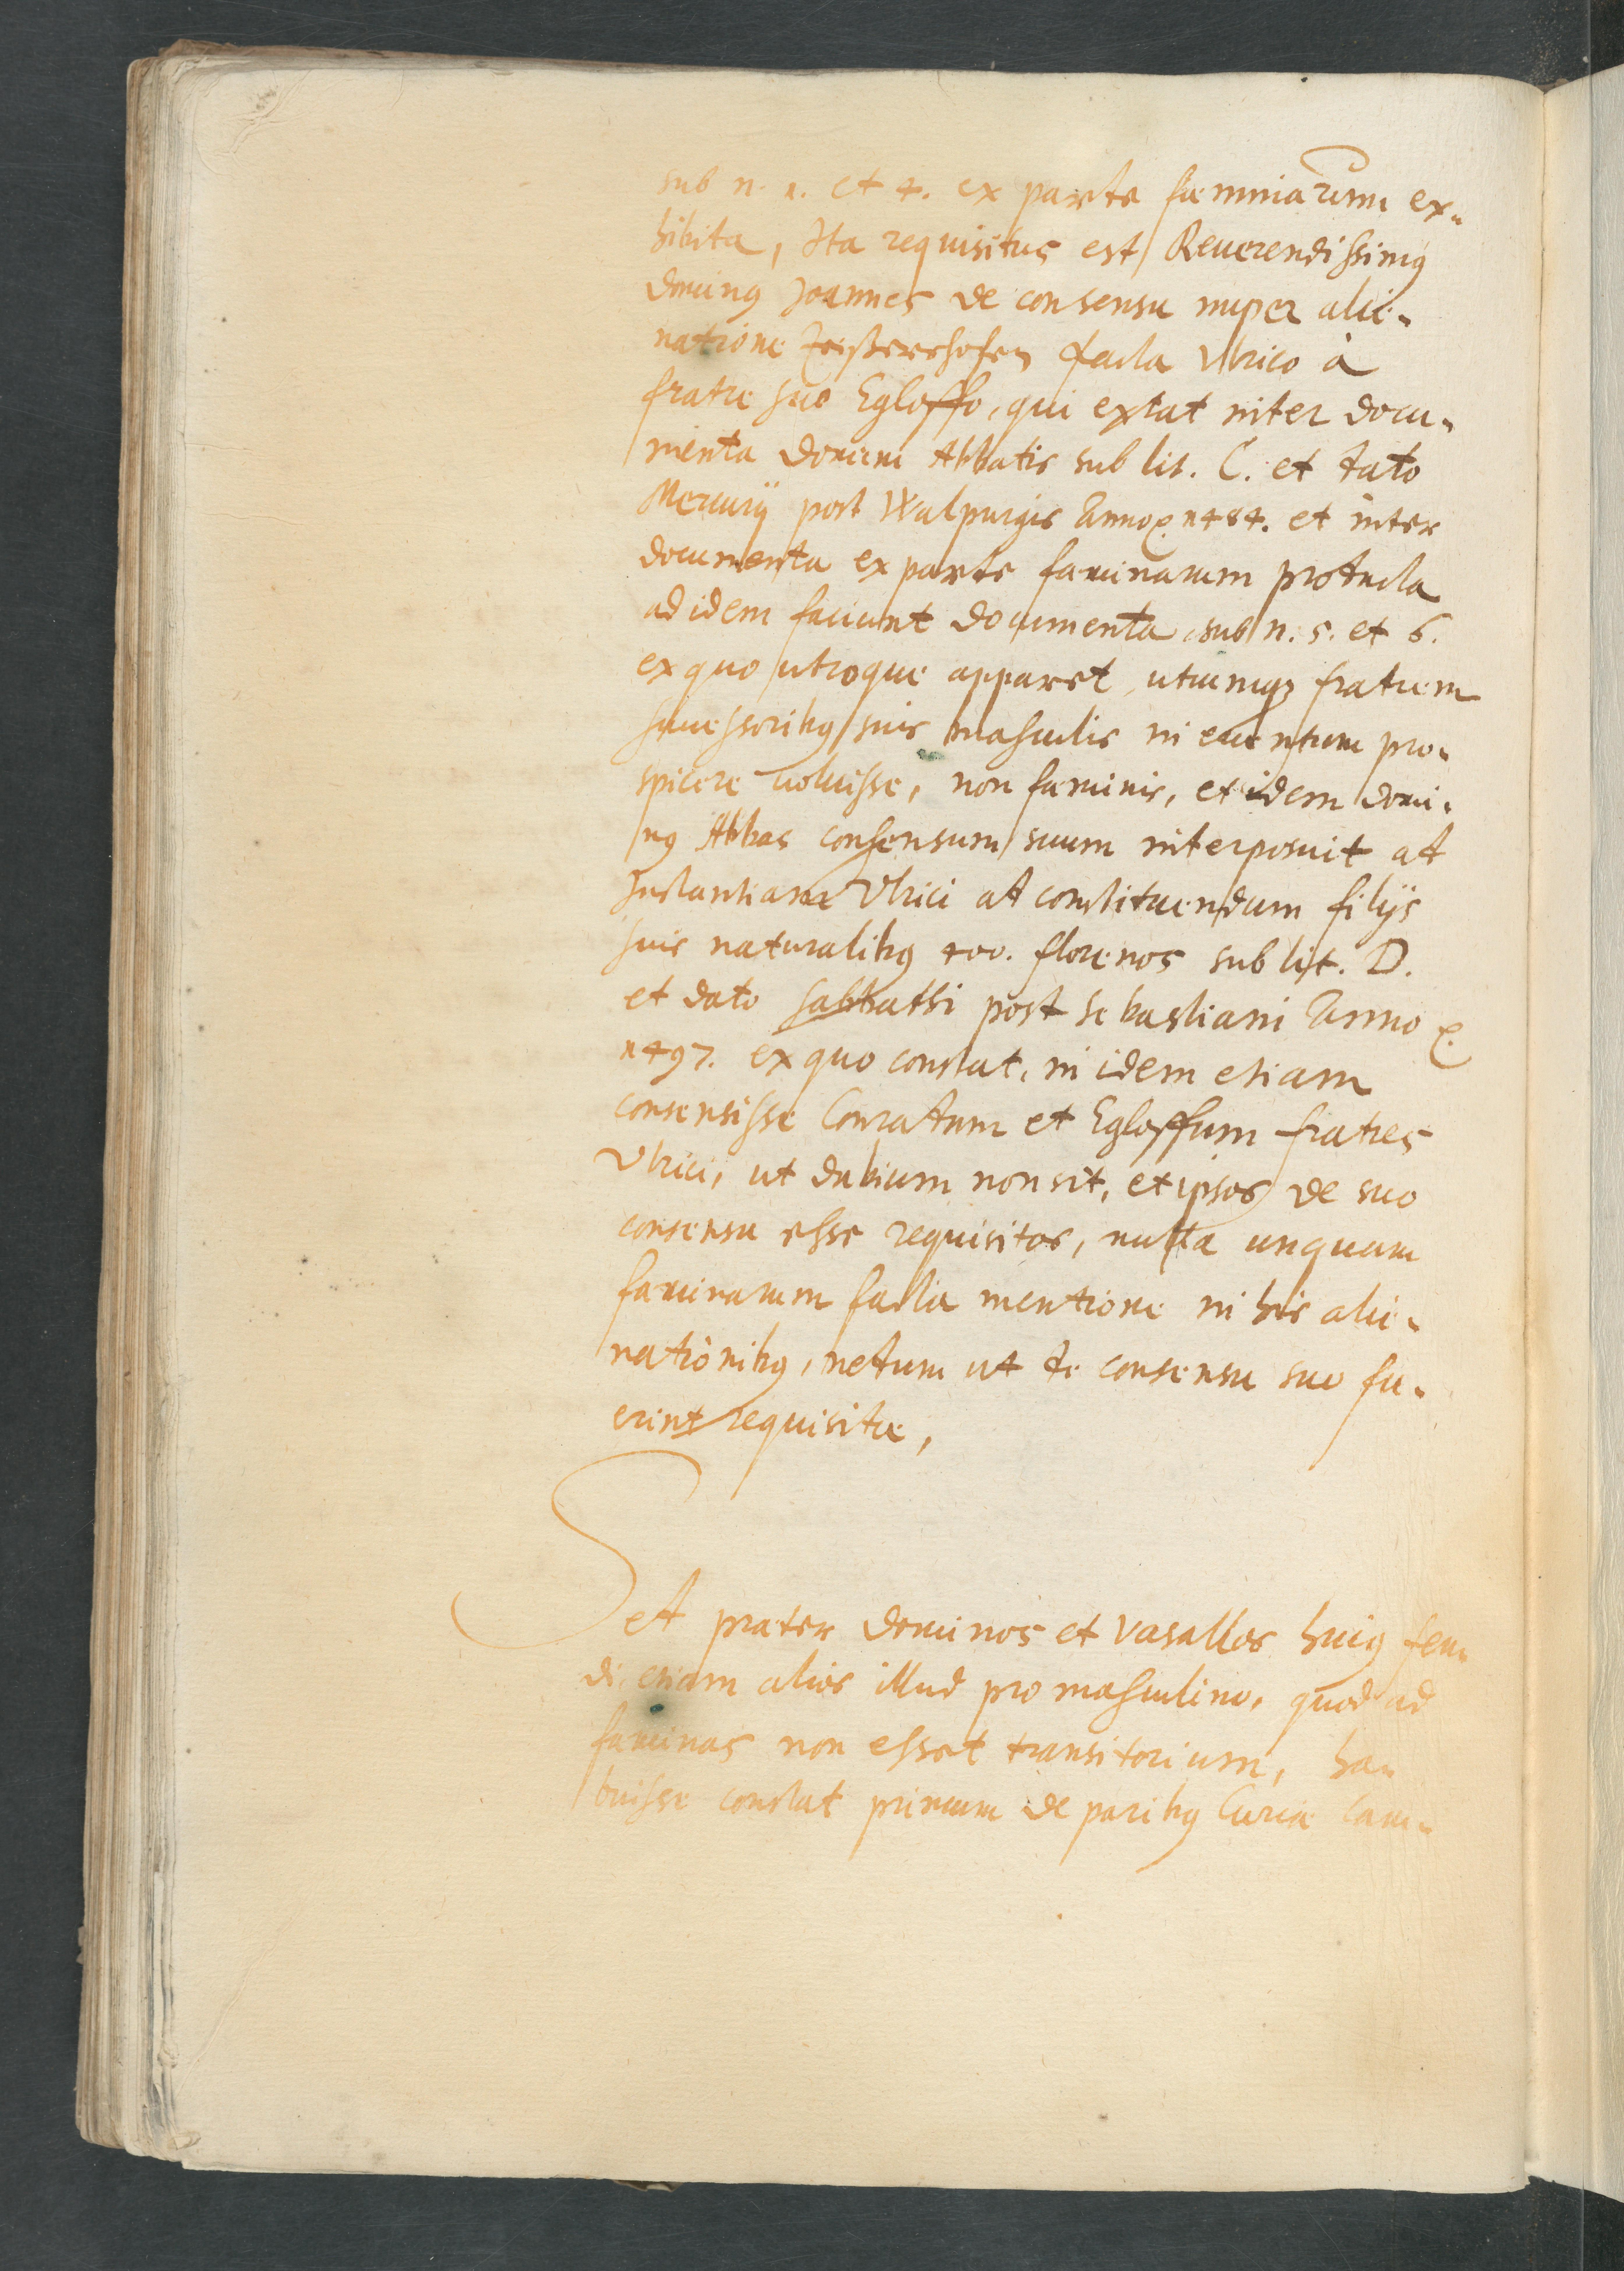 sub n. 1. et 4. ex parte fæminarum ex-
hibita, Ita requisitus est Reverendissimus
dominus Joannes de consensu nuper alie-
natione facta Ulrico à
fratre suo Egloffo, qui extat inter docu-
menta domini Abbatis sub lit. C. et dato
Mercurij post Walpurgis Anno 1484. et inter
documenta ex parte fæminarum producta
ad idem faciunt documenta sub n. 5. et 6.
ex quo utroque apparet, utrumque fratrem
successoribus suis masculis in eventum pro-
spicere voluisse, non fæminis, et idem domi-
nus Abbas consensum suum interposuit ad
Instantiam Ulrici ad constituendum filijs
suis naturalibus 400. florenos sub lit. D.
et dato sabbathi post Sebastiani Anno
1497. ex quo constat, in idem etiam
consensisse Conradum et Egloffum fratres
Ulrici, ut dubium non sit, et ipsos de suo
consensu esse requisitos, nulla unquam
fæminarum facta mentione in his alie-
nationibus, nedum ut de consensu suo fu-
erint requisitæ,
Sed præter dominos et vasallos huius feu-
di, etiam alios illud pro masculino, quod ad
fæminas non esset transitorium, ha-
buisse constat primum de paribus Curiæ Cam-